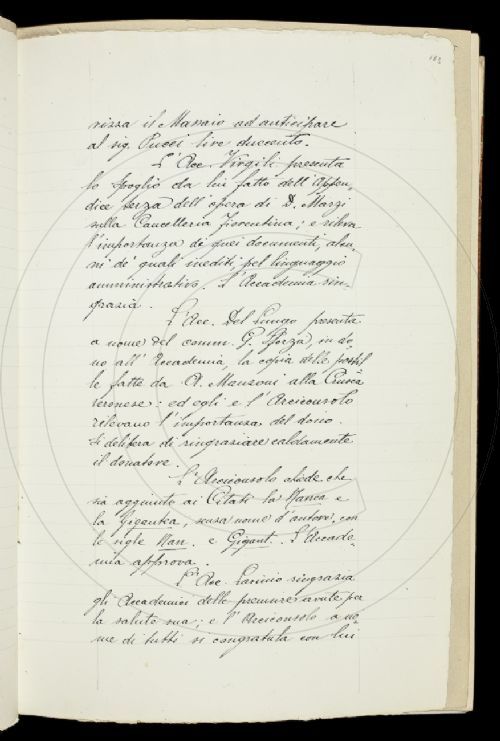 183
rizza il Massaio ad anticipare
al sig. Pucci lire duecento.
L'Acc. Virgili presenta
lo spoglio da lui fatto dell'Appen-
dice terza dell'opera di D. Marzi
sulla Cancelleria Fiorentina; e rileva
l'importanza di quei documenti, alcu-
ni de' quali inediti, pel linguaggio
amministrativo. L'Accademia rin-
grazia.
L'Acc. Del Lungo presenta
a nome del comm. G. Sforza, in do-
no all'Accademia, la copia delle postil
le fatte da A. Manzoni alla Crusca
veronese: ed egli e l'Arciconsolo
rilevano l'importanza del dono.
Si delibera di ringraziare caldamente
il donatore.
L'Arciconsolo chiede che
sia aggiunto ai Citati la Nanea e
la Gigantea, senza nome d'autore, con
le sigle Nan. e Gigant. L'Accade-
mia approva.
L'Acc. ringrazia
gli Accademici delle premure avute per
la salute sua; e l'Arciconsolo a no-
me di tutti si congratula con lui